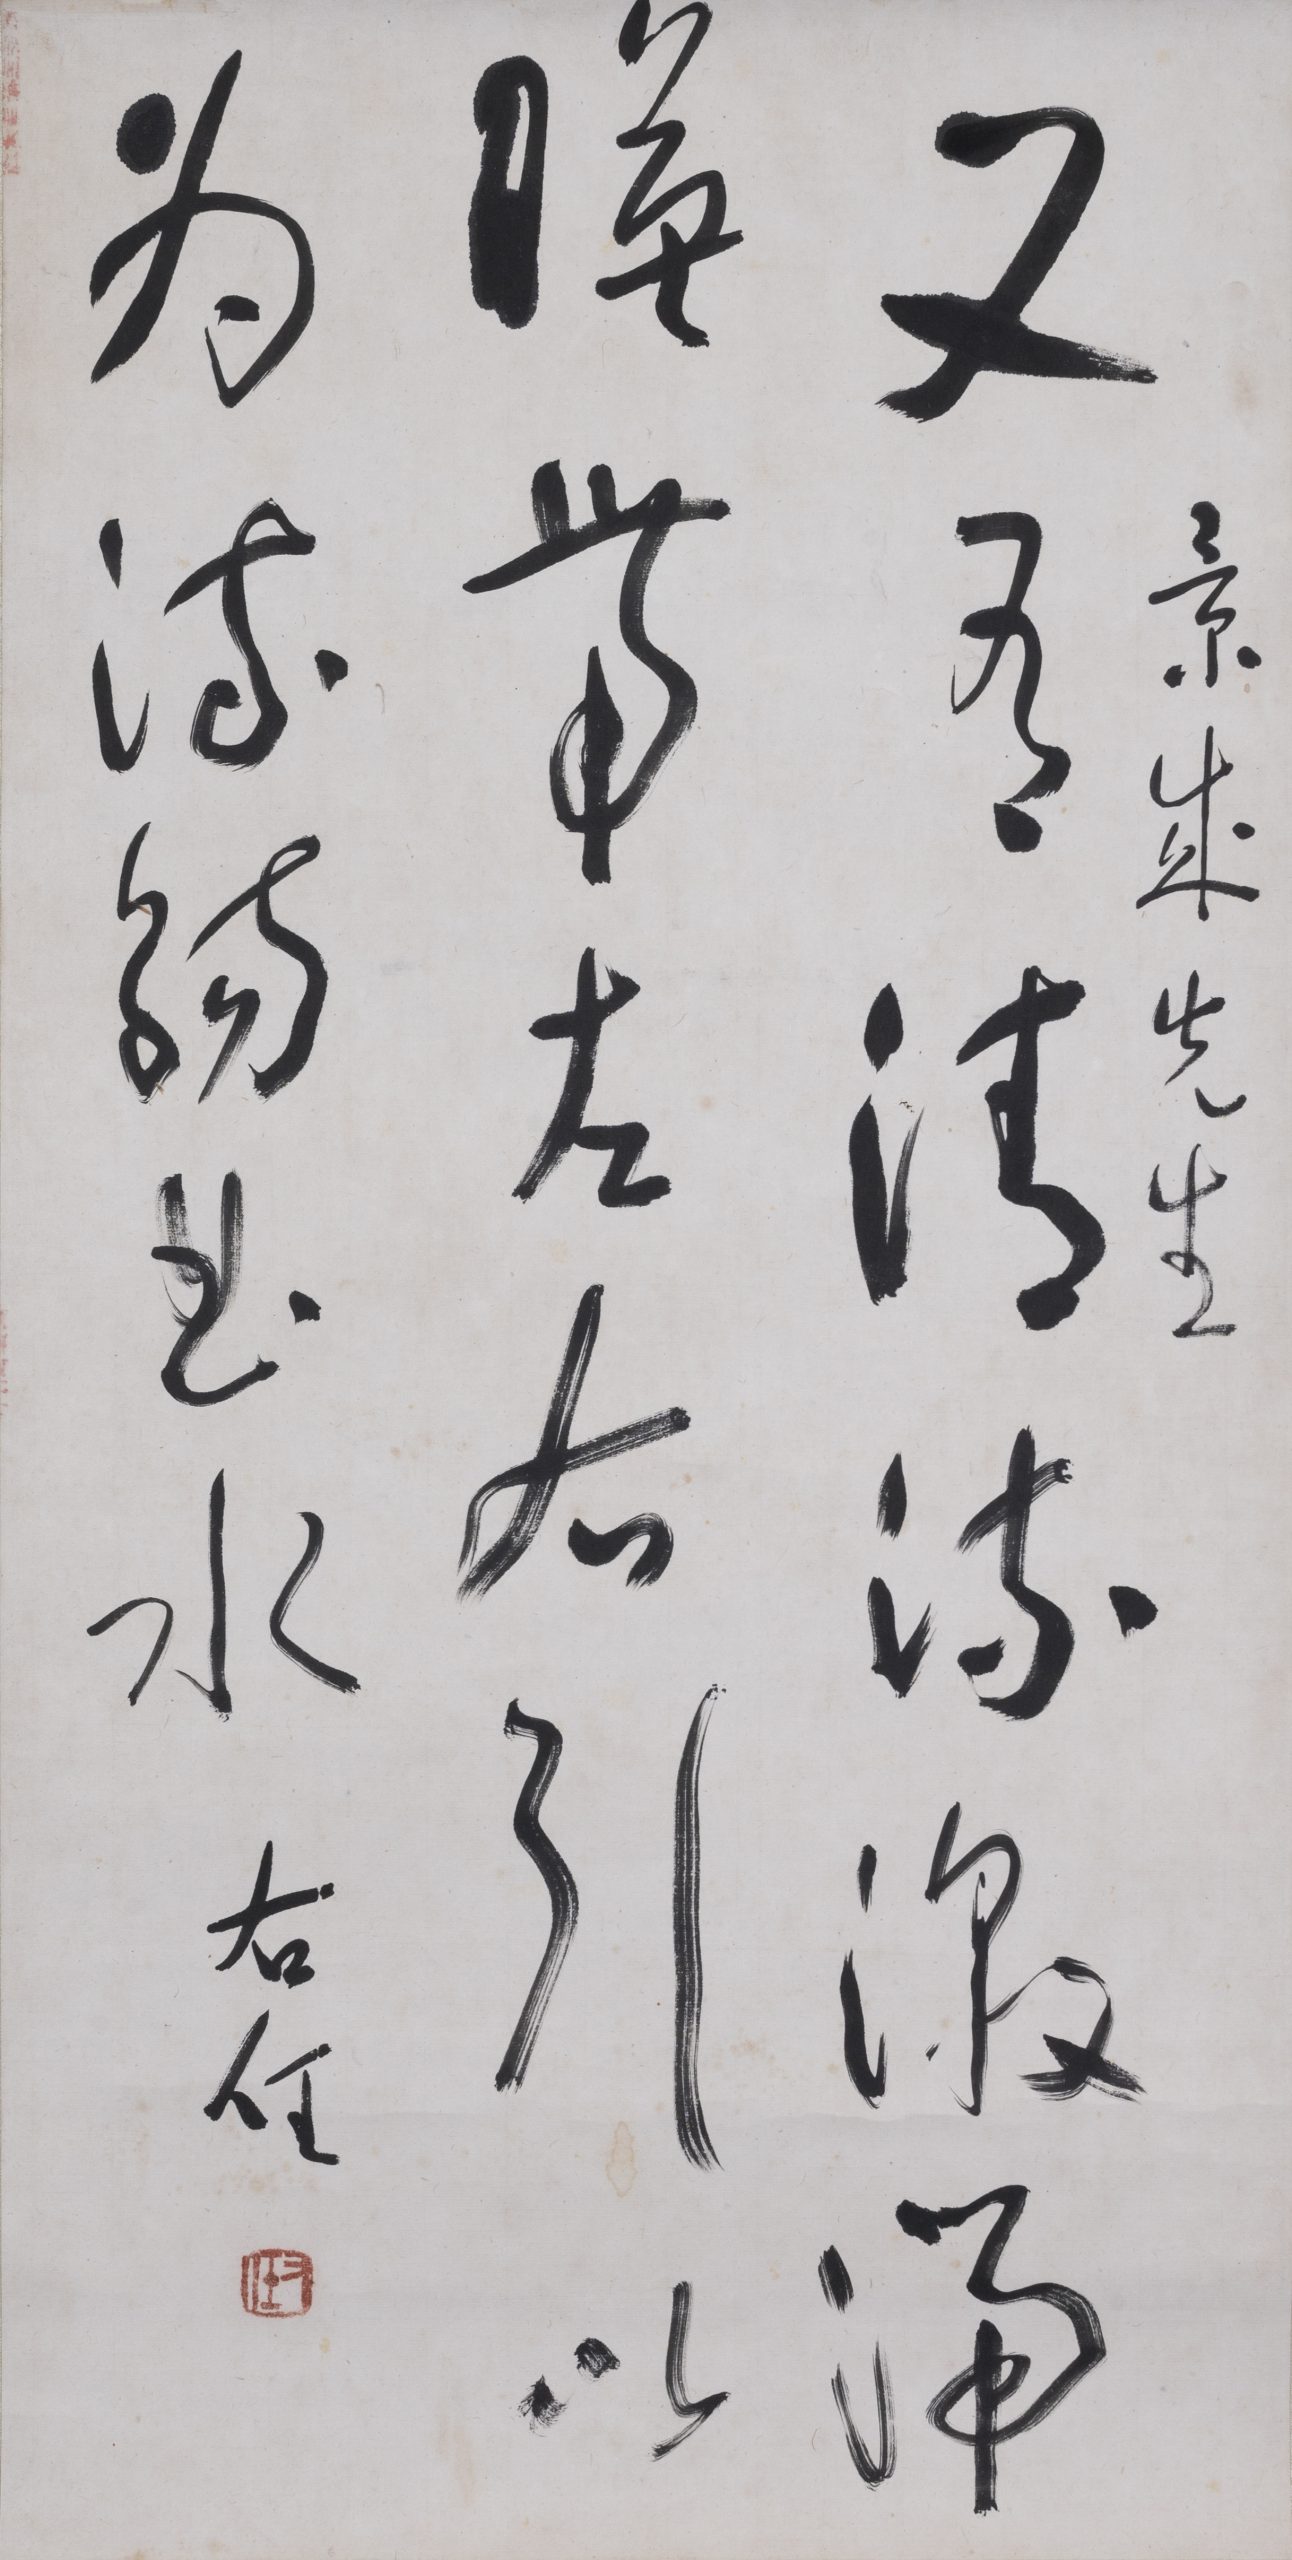 景先生
又有清流激湍
暎帶左右引以
為流觴曲水
右任
右任